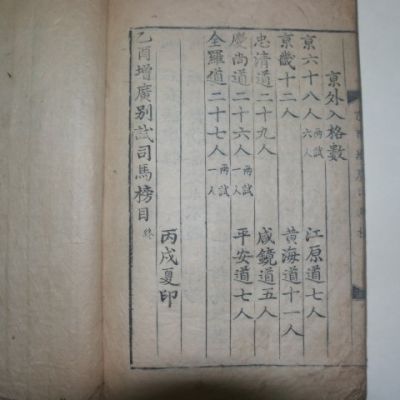 京外入格數
京六十八人 兩試六人 江原道七人
京畿十二人 黃海道十一人
忠清道二十九人 咸鏡道五人
慶尙道二十六人 兩試一人 平安道七人
全羅道二十七人 兩試一人
丙戌夏印
乙酉增廣別試司馬榜目 終